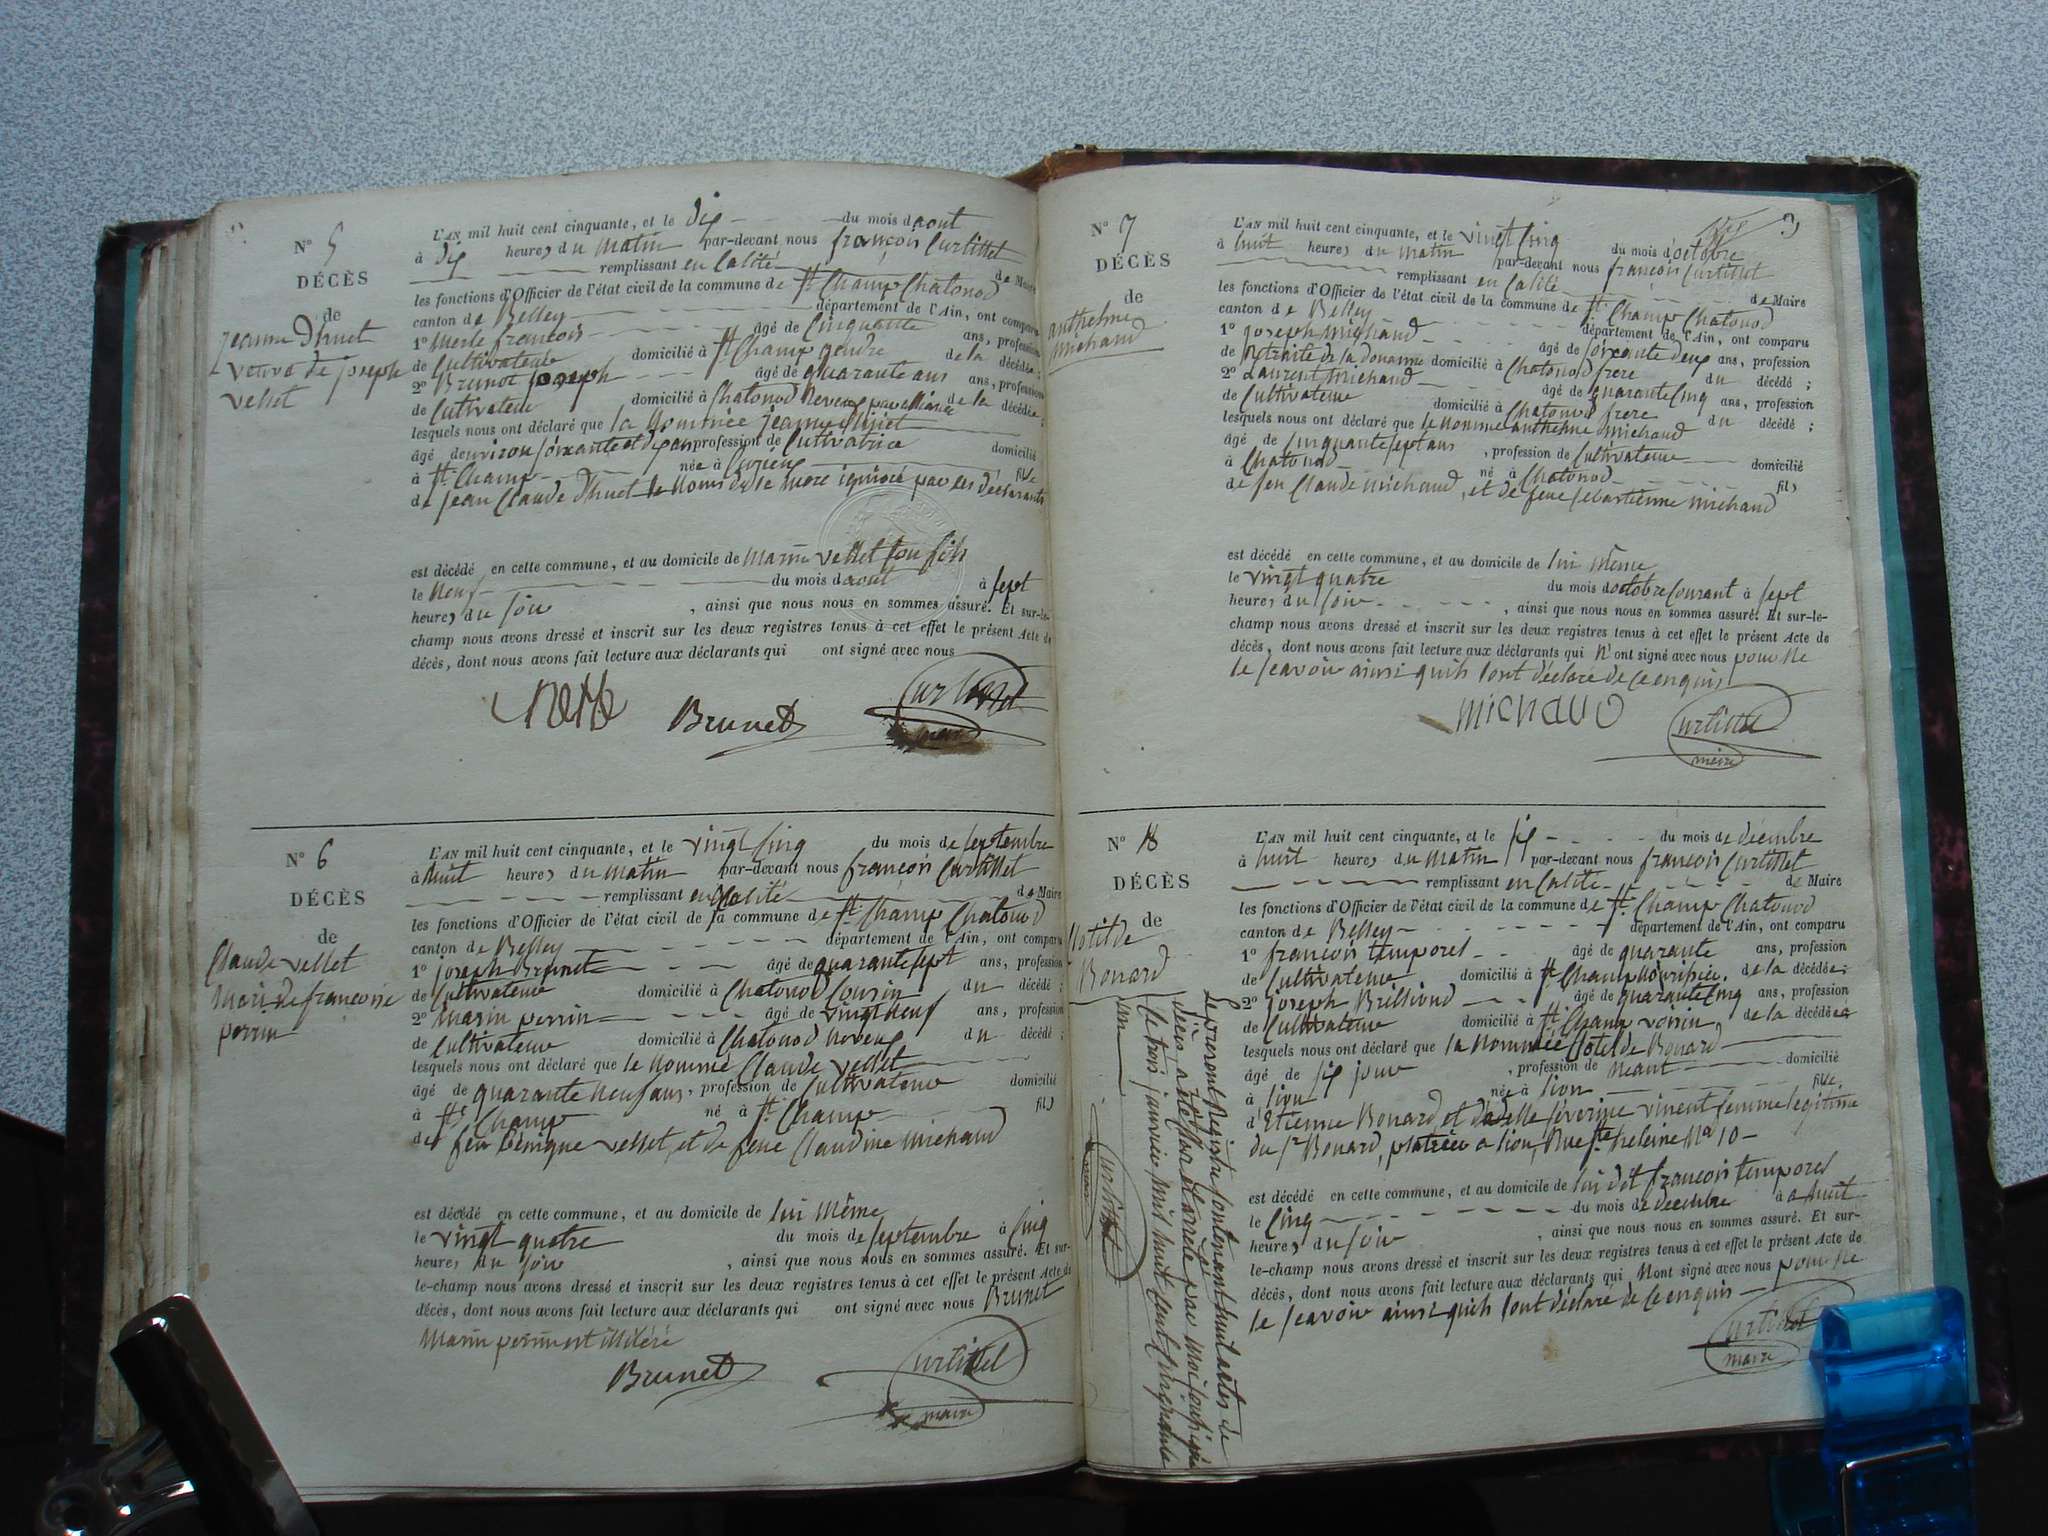 N° 5
DÉCÈS
de
jeanne Thuet
veuve de joseph
vellet
L'AN mil huit cent cinquante, et le dix du mois d'aout
à dix heures du matin par-devant nous françois Curtillet
remplissant en Calité de Maire
les fonctions d'Officier de l'état civil de la commune de St Champ Chatonod
canton de Belley département de l'Ain, ont comparu
1° Merle françois âgé de Cinquante ans, profession
de Cultivateur domicilié à St Champ gendre de la décédée;
2° Brunet joseph âgé de quarante ans ans, profession
de Cultivateur domicilié à Chatonod Neveux par alliance de la décédée;
lesquels nous ont déclaré que la Nommée jeanne
âgé d'environ soixante et dix ans profession de Cultivatrice domicilié
à St Champ née à fille
de jean Claude Thuet le Nom de le mere ignoré par les déclarants
est décédé en cette commune, et au domicile de Marin vellet son fils
le Neuf du mois d'aout à sept
heures du soir, ainsi que nous nous en sommes assuré. Et sur-le-
champ nous avons dressé et inscrit sur les deux registres tenus à cet effet le présent Acte de
décès, dont nous avons fait lecture aux déclarants qui ont signé avec nous
Brunet
Curtillet
maire
N° 6
DÉCÈS
de
Claude vellet
Mari de françoise
perrin
L'AN mil huit cent cinquante, et le vingt Cinq du mois de septembre
à huit heures du matin par-devant nous françois Curtillet
remplissant en Calité de Maire
les fonctions d'Officier de l'état civil de la commune de St Champ Chatonod
canton de Belley département de l'Ain, ont comparu
1° joseph Brunet âgé de quarante sept ans, profession
de Cultivateur domicilié à Chatonod Cousin du décédé;
2° Marin perrin âgé de vingt Neuf ans, profession
de Cultivateur domicilié à Chatonod Neveux du décédé;
lesquels nous ont déclaré que le nommé Claude vellet
âgé de quarante Neuf ans, profession de Cultivateur domicilié
à St Champ né à St Champ fils
de feu Benigne vellet, et de feue Claudine Michaud
est décédé en cette commune, et au domicile de lui Même
le vingt quatre du mois de septembre à Cinq
heures du soir, ainsi que nous nous en sommes assuré. Et sur-
le-champ nous avons dressé et inscrit sur les deux registres tenus à cet effet le présent Acte de
décès, dont nous avons fait lecture aux déclarants qui ont signé avec nous Brunet
Marin perrin est illitéré
Brunet
Curtillet
maire
3
N° 7
DÉCÈS
de
anthelme
Michaud
L'AN mil huit cent cinquante, et le vingt Cinq du mois d'octobre
à huit heures du matin par-devant nous françois Curtillet
remplissant en Calité de Maire
les fonctions d'Officier de l'état civil de la commune de St Champ Chatonod
canton de Belley département de l'Ain, ont comparu
1° joseph Michaud âgé de soixante deux ans, profession
de Retraité de la Douanne domicilié à Chatonod frere du décédé;
2° Laurent Michaud âgé de quarante Cinq ans, profession
de Cultivateur domicilié à Chatonod frere du décédé;
lesquels nous ont déclaré que le Nommé anthelme Michaud
âgé de Cinquante sept ans, profession de Cultivateur domicilié
à Chatonod né à Chatonod fils
de feu Claude Michaud, et de feue sebastienne Michaud
est décédé en cette commune, et au domicile de lui même
le vingt quatre du mois d'octobre Courant à sept
heures du soir, ainsi que nous nous en sommes assuré. Et sur-le-
champ nous avons dressé et inscrit sur les deux registres tenus à cet effet le présent Acte de
décès, dont nous avons fait lecture aux déclarants qui N'ont signé avec nous pour Ne
le scavoir ainsi quils l'ont déclaré de Ce enquis
Michaud
Curtillet
maire
N° 8
DÉCÈS
de
Clotilde
Bonard
L'AN mil huit cent cinquante, et le six du mois de décembre
à huit heures du Matin par-devant nous françois Curtillet
remplissant en Calité de Maire
les fonctions d'Officier de l'état civil de la commune de St Champ Chatonod
canton de Belley département de l'Ain, ont comparu
1° françois temporel âgé de quarante ans, profession
de Cultivateur domicilié à St Champ Nourisier de la décédée;
2° joseph Brilliond âgé de quarante Cinq ans, profession
de Cultivateur domicilié à St Champ voisin de la décédée
lesquels nous ont déclaré que la Nommée Clotilde Bonard
âgé de six jour, profession de Neant domicilié
à Lion née à Lion fille
d'Etienne Bonard, et d'adelle séverine vincent femme legitime
du Sr Bonard, platrier a Lion, Rue Ste heleine No 10
est décédé en cette commune, et au domicile de lui dit françois temporel
le Cinq du mois de decembre à huit
heures du soir, ainsi que nous nous en sommes assuré. Et sur-
le-champ nous avons dressé et inscrit sur les deux registres tenus à cet effet le présent Acte de
décès, dont nous avons fait lecture aux déclarants qui N'ont signé avec nous pour Ne
le scavoir ainsi quils l'ont déclaré de Ce enquis
Curtillet
maire
Le present Registre Contenant huit actes de
décès, a été Clos et arrêté par Moi soussigné
le trois janvier Mil huit Cent Cinquante
un
Curtillet
maire